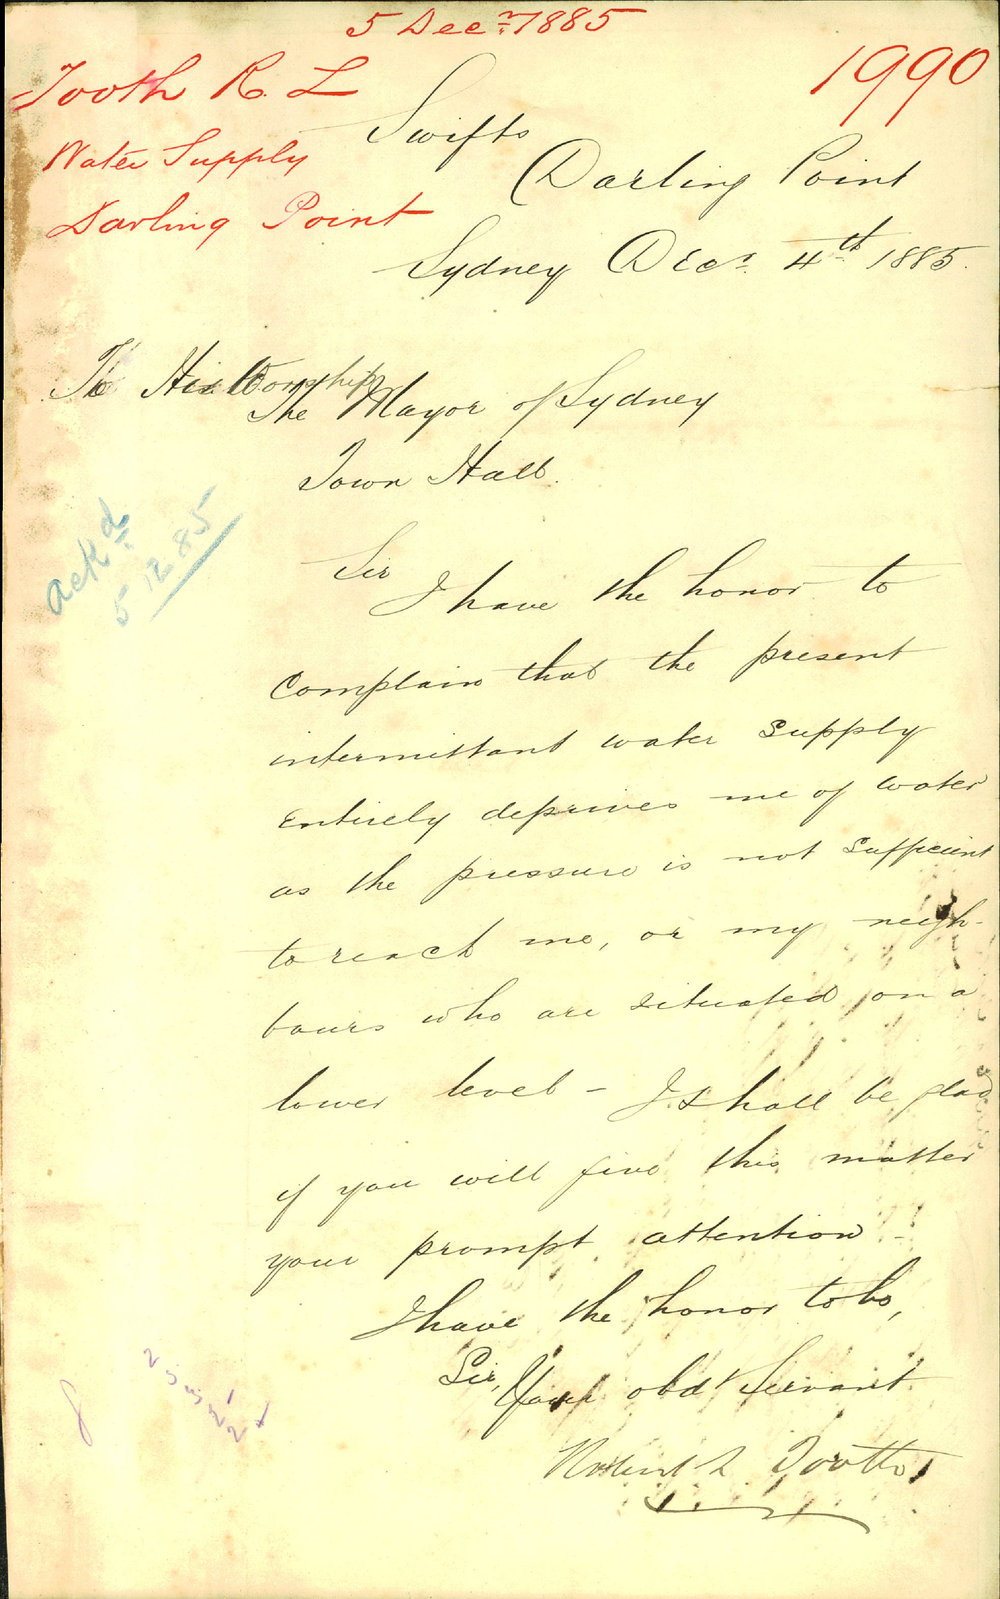 5 Decr 1885
1990
Tooth R. L
Water Supply
Darling Point
Swifts
Darling Point
Sydney Decr. 4th 1885.
To His Worship
The Mayor of Sydney
Town Hall.
ackd
5 12 85
Sir
I have the honor to
complain that the present
intermittant water supply
entirely deprives me of water
as the pressure is not sufficient
to reach me, or my neigh-
bours who are situated on a
lower level - I shall be glad
if you will give this matter
your prompt attention -
I have the honor to be,
Sir,
Your obdt Servant
Robert L Tooth